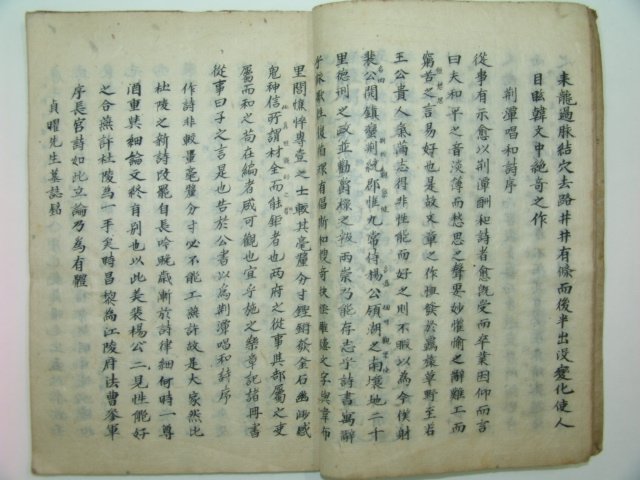 來龍過脉結穴去路井井有條而後半出沒變化使人
目眩韓文中絶奇之作
荆潭唱和詩序
從事有示愈以荆潭酬和詩者愈旣受而卒業因仰而言
曰夫和平之音淡薄而愁思之聲要妙懽愉之辭難工而
窮苦之言易好也是故文章之作恒發於羈旅草野至若
王公貴人氣滿志得非性能而好之則不暇以爲今僕射
裴公開鎭蠻荆統郡惟九常侍楊公領湖之南壤地二十
里德刑之政並勤爵祿之報兩崇乃能存志乎詩書寓辭
乎咏歌往復循環有唱斯和搜奇抉怪雕鏤文字與韋布
里閭憔悴專壹之士較其毫釐分寸鏗鏘發金石幽渺感
鬼神信所謂材全而能鉅者也兩府之從事與部屬之吏
屬而和之苟在編者咸可觀也宜乎施之樂章記諸冊書
從事曰子之言是也告於公書以爲荆潭唱和詩序
作詩非較量毫釐分寸必不能工燕許故是大家然比
杜陵之新詩罷自長吟旣歲漸於詩律細何時一尊
酒重與細論文終自別也以此美裴楊公二見性能好
之合燕許杜陵爲一手矣時昌黎爲江陵府法曹參軍
序長官詩如此立論乃爲有體
貞曜先生墓誌銘